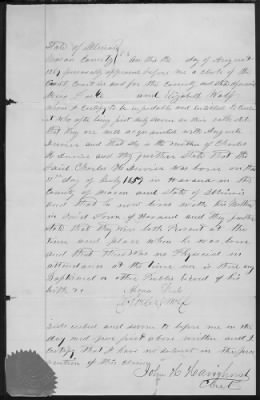 State of Illinois
Mason County } On this the day of August
1867 personally appeared before me a clerk of the
Court in and for this County and State aforesaid
Mena and Elizabeth Wolf
whom I certify to be reputable and entitled to Credit
and who after being first duly sworn on their oaths state
that they are well acquainted with Augusta
and that she is the mother of Charles
H. and they further State that the
said Charles H. was born on the
11th day of July 1857 in Havana in the
County of Mason and State of Illinois
and that he now lives with his Mother
in said Town of Havana and they further
state that they were both Present at the
time and place when he was born
and that there was no Physician in
attendance at the time nor is there any
Baptismal or other Public Record of his
birth &c.
Mena
Elizabeth Wolf
Subscribed and sworn to before me on the
day and year first above written and I
certify that I have no interest in the prose-
cution of this claim
John H. Havighorst
Clerk